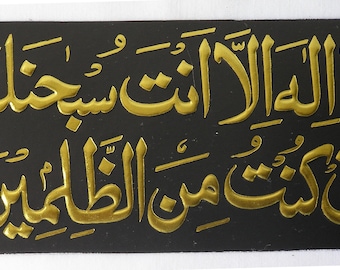 إِلَهَ إِلَّا أَنتَ سُبْحَنَكَ
كُنتُ مِنَ الظَّلِمِينَ